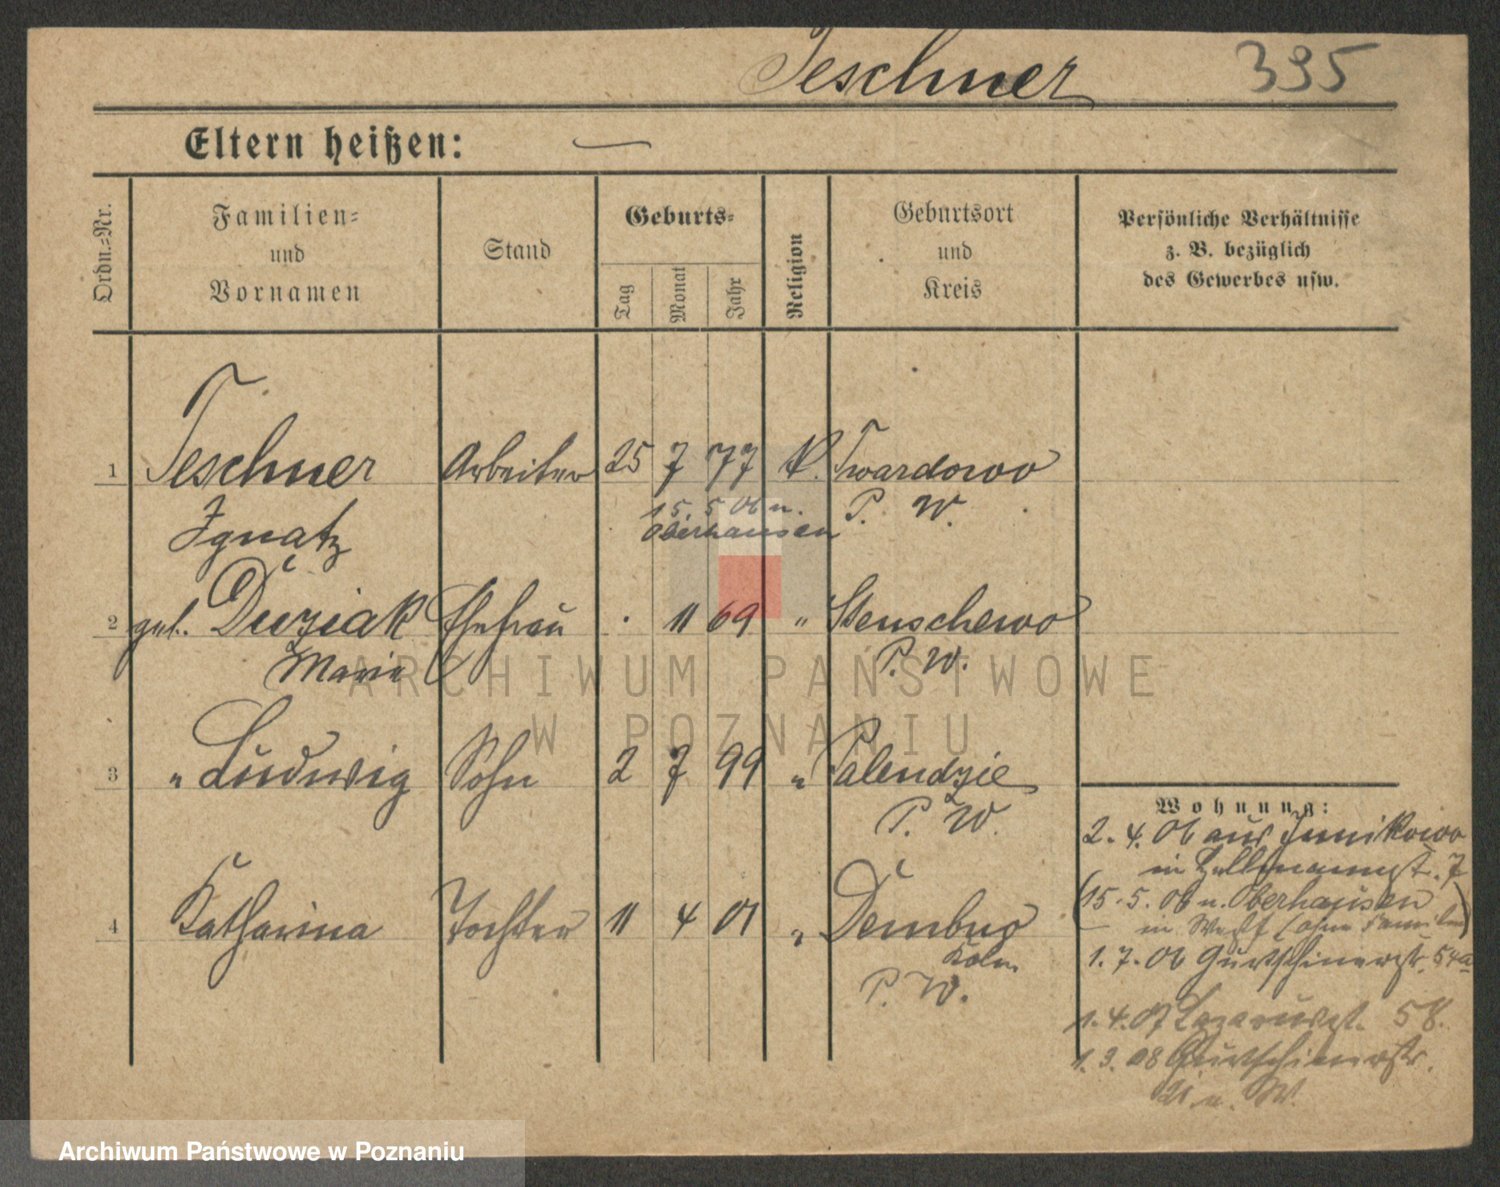 Teschner 395
Eltern heißen: —
Ordn.-Nr.
Familien-
und
Vornamen
Stand
Geburts-
Tag
Monat
Jahr
Religion
Geburtsort
und
Kreis
Persönliche Verhältnisse
z. B. bezüglich
des Gewerbes usw.
1 Teschner Arbeiter 25 7 77 K. Twardowo
Ignatz 15. 5. 06 n. P. W.
Oberhausen
2 geb. Duziak Ehefrau . 11 69 " Stenschewo
Marie P. W.
3 " Ludwig Sohn 2 7 99 " Palendzie
P. W.
4 Katharina Tochter 11 4 01 " Dembno
Koln.
P. W.
Wohnung:
2. 4. 06 aus Junikowo
in 7
(15. 5. 06 n. Oberhausen
in Westf. (ohne Familie)
1. 7. 06 Gurtschinerstr. 54a
1. 4. 07 Lazarusst. 58.
1. 3. 08 Gurtschinerstr.
21 n. W.
ARCHIWUM PAŃSTWOWE
W POZNANIU
Archiwum Państwowe w Poznaniu